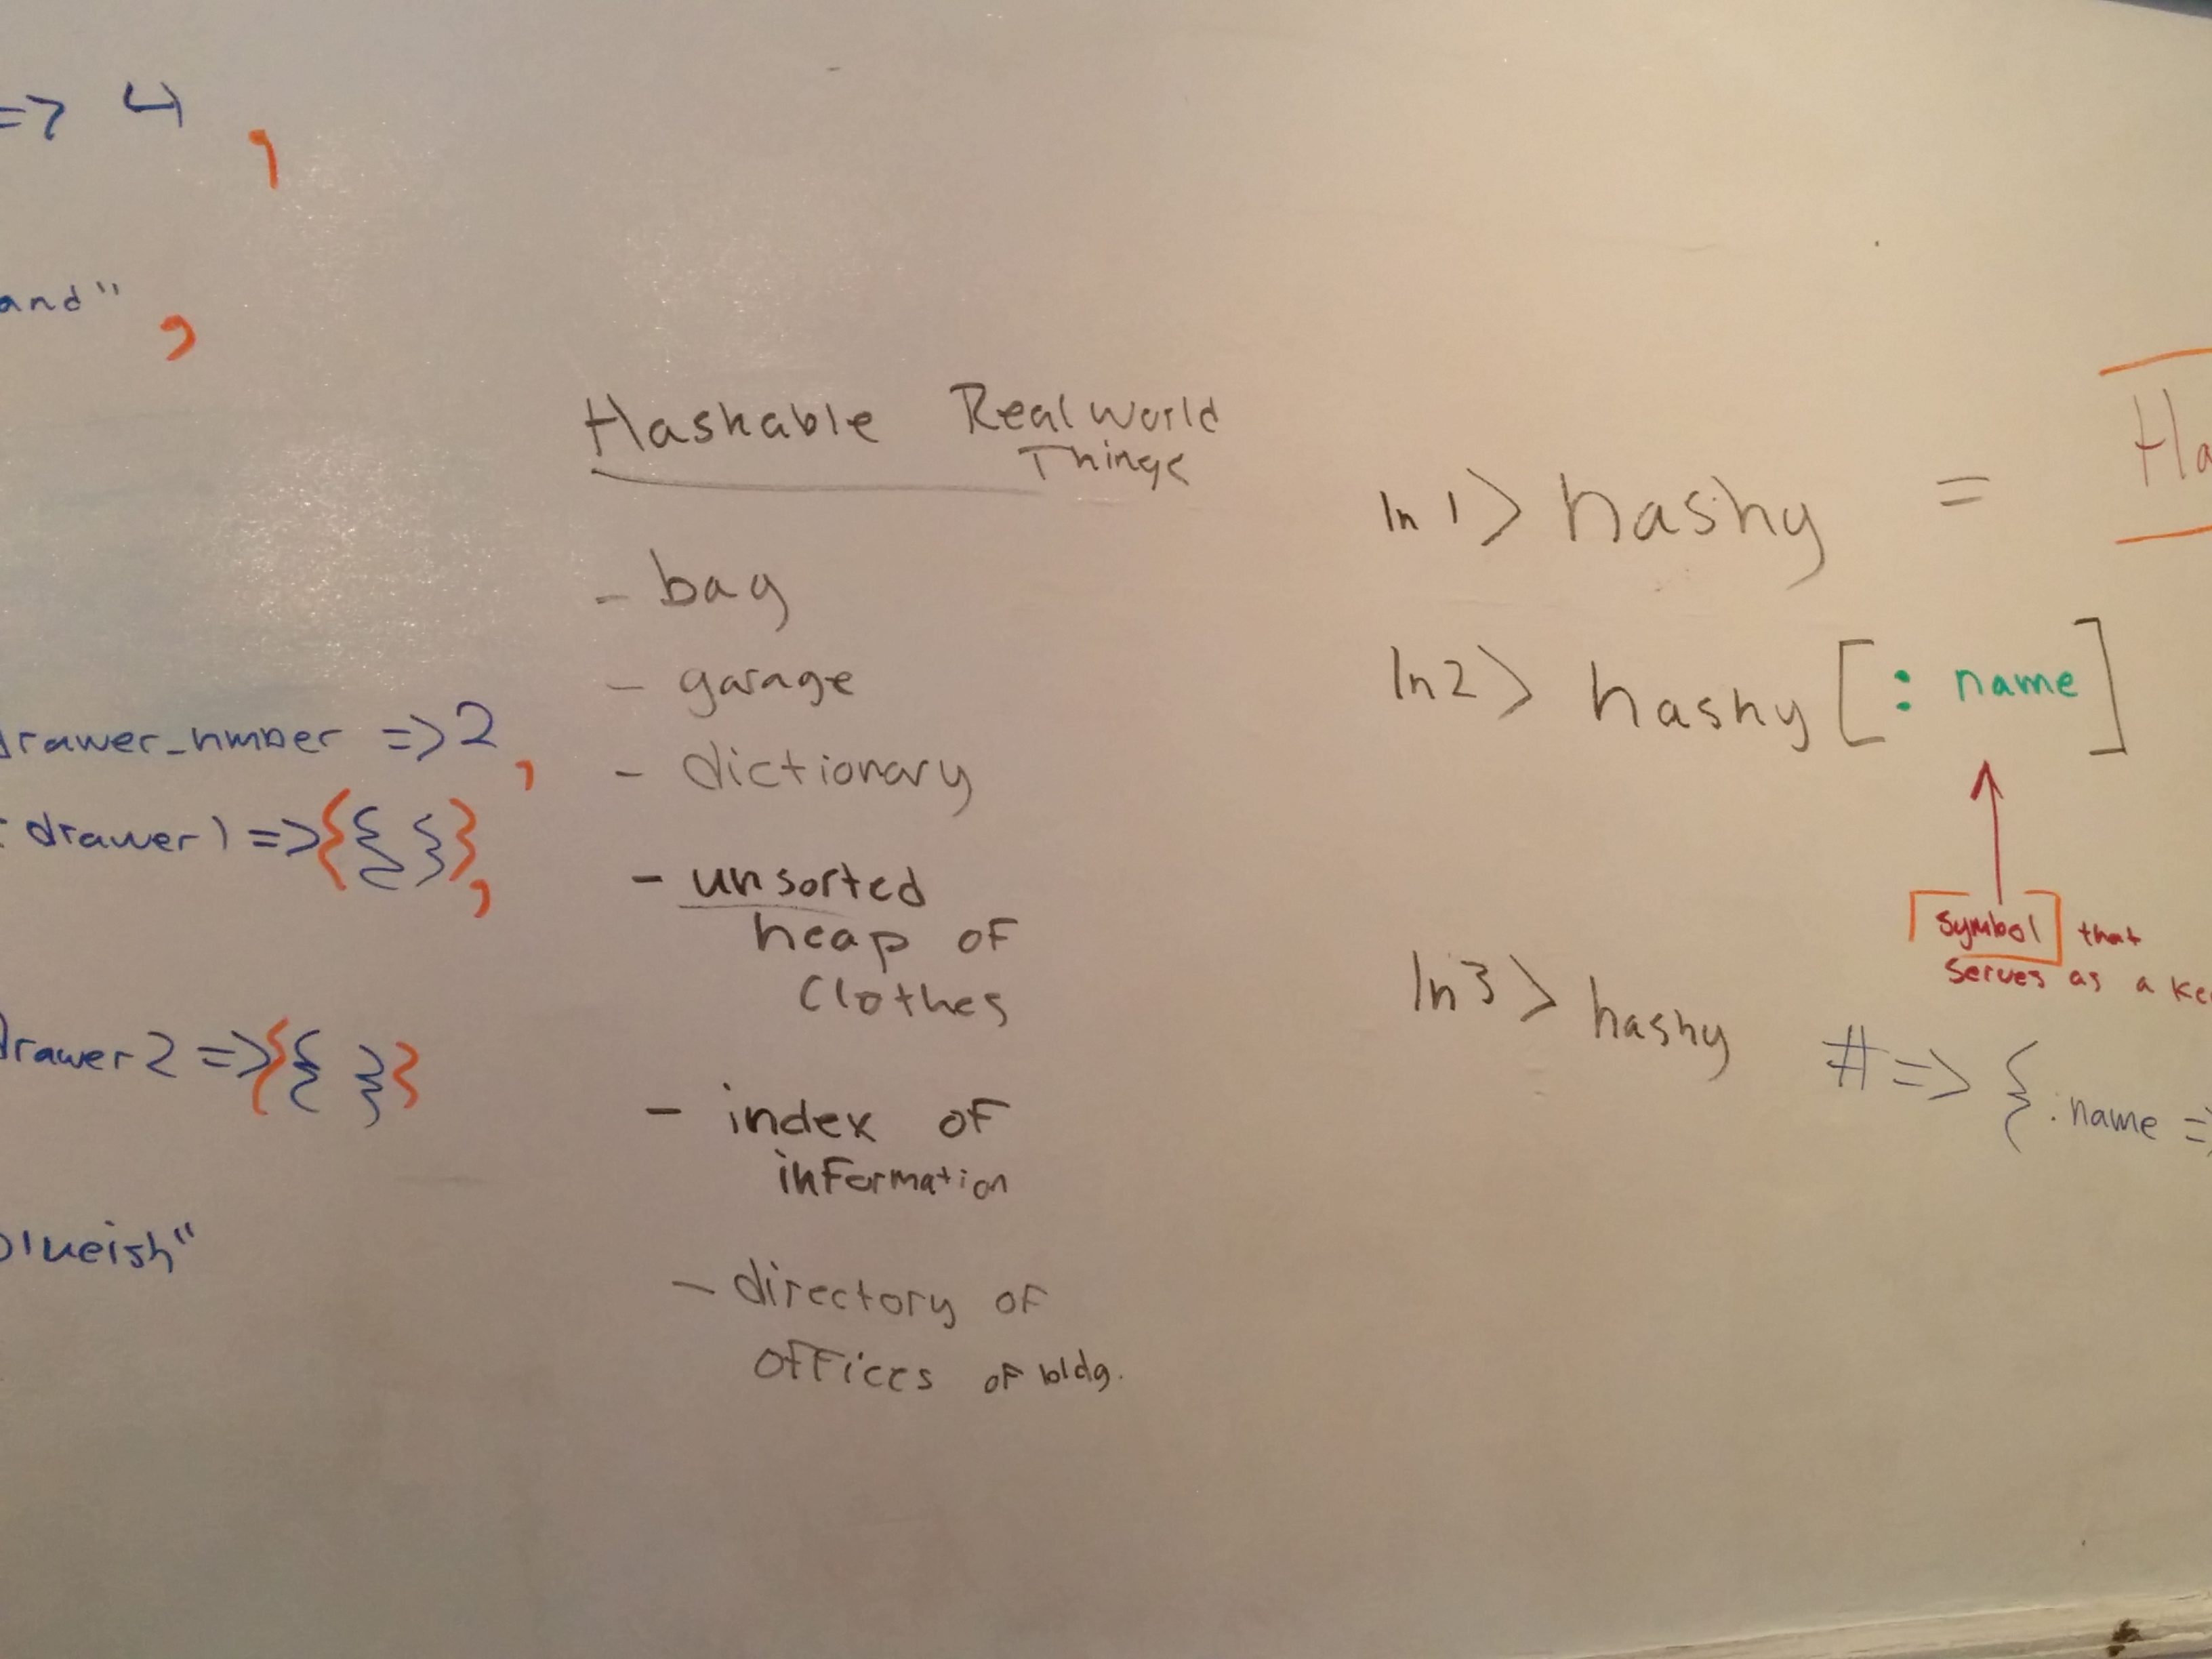 => 4 ,
and" ,
drawer_number => 2 ,
: drawer1 => { { } } ,
drawer2 => { { } }
blueish"
Hashable Real World
Things
- bag
- garage
- dictionary
- unsorted
heap of
Clothes
- index of
information
- directory of
offices of bldg.
ln 1> hashy = Ha
ln 2> hashy [: name]
symbol that
serves as a ke
ln 3> hashy # => { :name =>